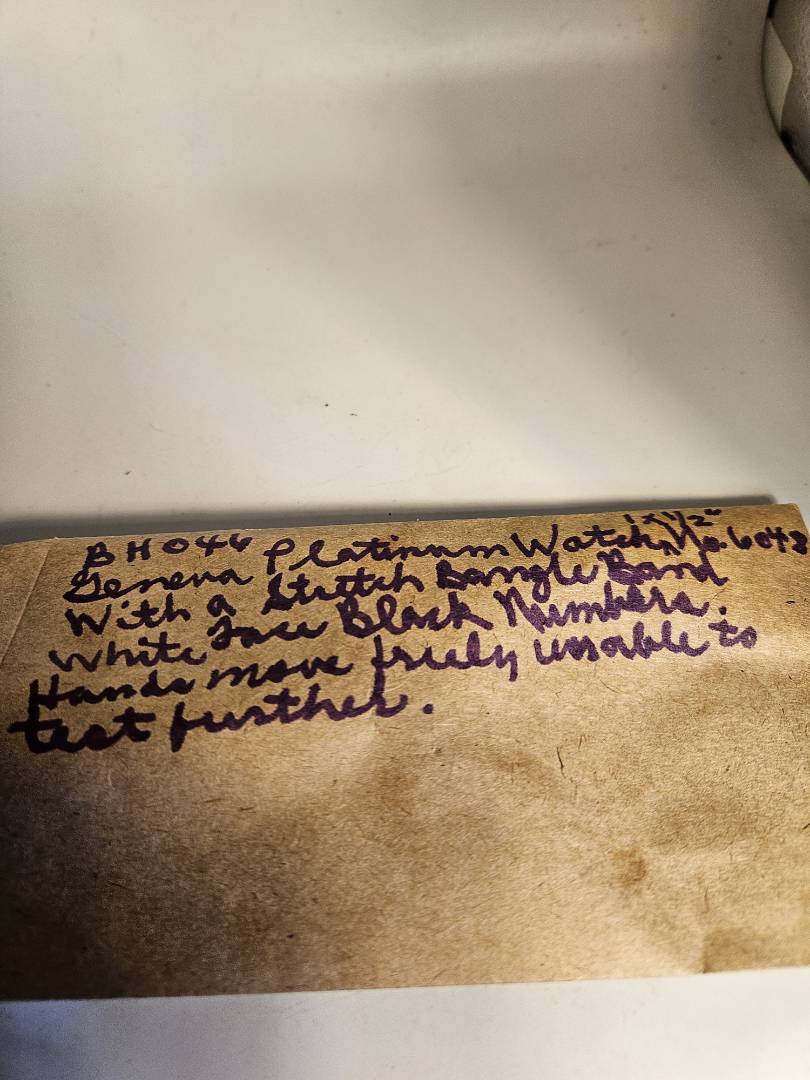 BH046 1 x 1/2"
Geneva Platinum Watch, No. 6048
With a Stretch Bangle Band
White face Black Numbers.
Hands move freely unable to
test further.